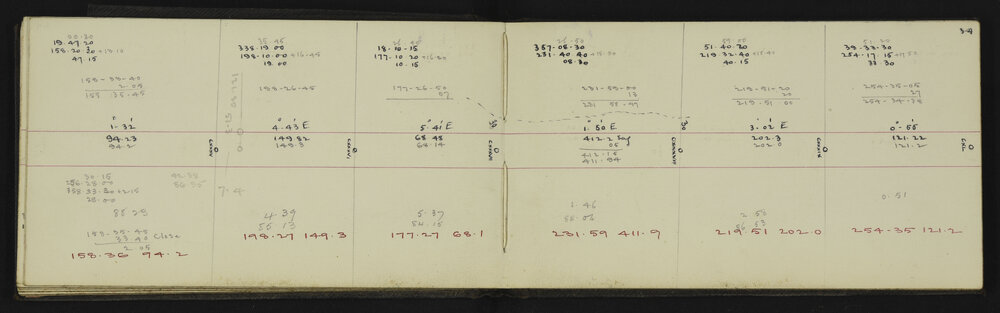 3-4
19.47.20
158.20.30 +15.10
47.15
158-33-40
2.05
158 35-45
1.32
94.23
94.2
30 15
256.28.00
358.33.30 +2.15
28.00
158-35-45
33.40 Close
2 05
158.36 94.2
7-4
35-45
338.19 00
198.10.00 +16.45
19 00
198-26-45
4.43 E
149.82
149.3
4.39
55 13
198.27 149.3
18-10-15
177.10 20 +16.30
10.15
177-26-50
07
5.41 E
68.48
68.14
5.37
54.15
177.27 68.1
357-08-30
231.40 40
08.30
231-59-00
13
231 58-47
1.50 E
412.2 Sag
05
412.15
411.94
1.46
55.06
231.59 411.9
59.00
51.40.30
219.32.40 +15.40
40.15
219-51-20
20
219-51 00
3.02 E
202.3
202 0
219.51 202.0
51-20
39.33.30
254-17 15 +17.50
33 30
254-35-05
27
254-34-38
0-55
121.22
121.2
0.51
254-35 121.2